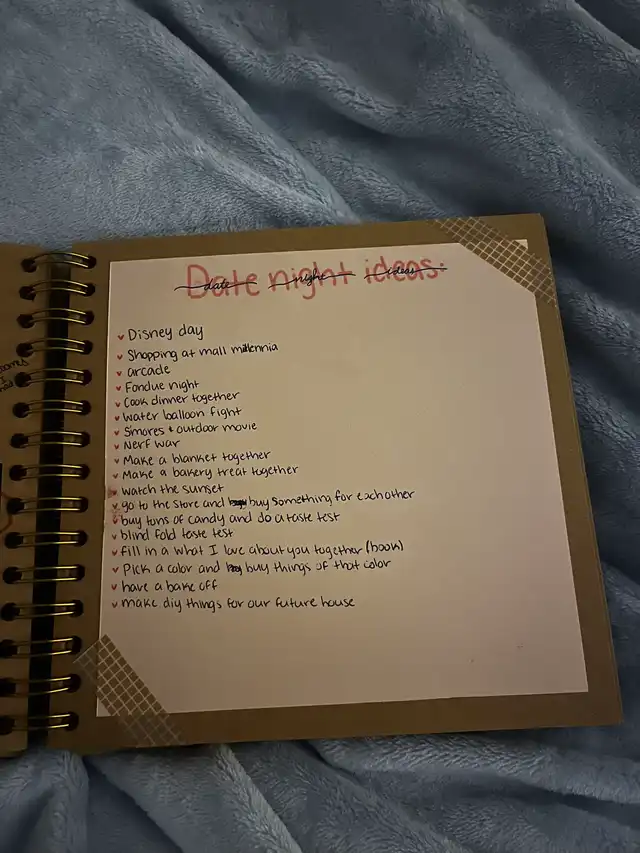 Date night ideas.
date night ideas
Disney day
Shopping at mall millennia
arcade
Fondue night
Cook dinner together
Water balloon fight
S'mores & outdoor movie
Nerf war
Make a blanket together
Make a bakery treat together
Watch the sunset
go to the store and buy something for each other
buy tons of candy and do a taste test
blind fold taste test
fill in a what I love about you together (book)
Pick a color and buy things of that color
have a bake off
make diy things for our future house